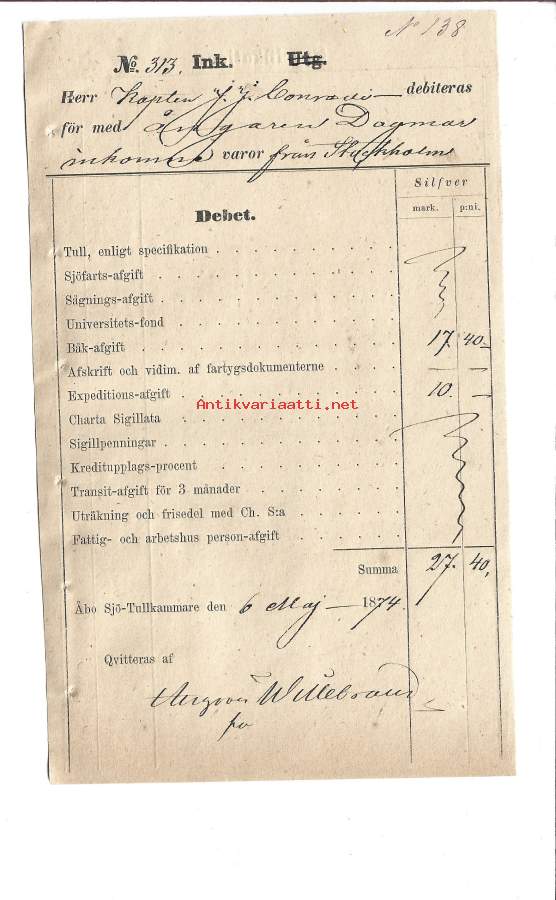 N 138
No. 313. Ink. Utg.
Herr Kapten J. J. Conradi debiteras
för med Ångaren Dagmar
inkomne varor från Stockholm
Silfver
Debet. mark. p:ni.
Tull, enligt specifikation
Sjöfarts-afgift
Sägnings-afgift
Universitets-fond
Båk-afgift 17. 40
Afskrift och vidim. af fartygsdokumenterne
Expeditions-afgift 10. —
Antikvariaatti.net
Charta Sigillata
Sigillpenningar
Kreditupplags-procent
Transit-afgift för 3 månader
Uträkning och frisedel med Ch. S:a
Fattig- och arbetshus person-afgift
Summa 27. 40,
Åbo Sjö-Tullkammare den 6 Maj — 1874.
Qvitteras af
Willebrand